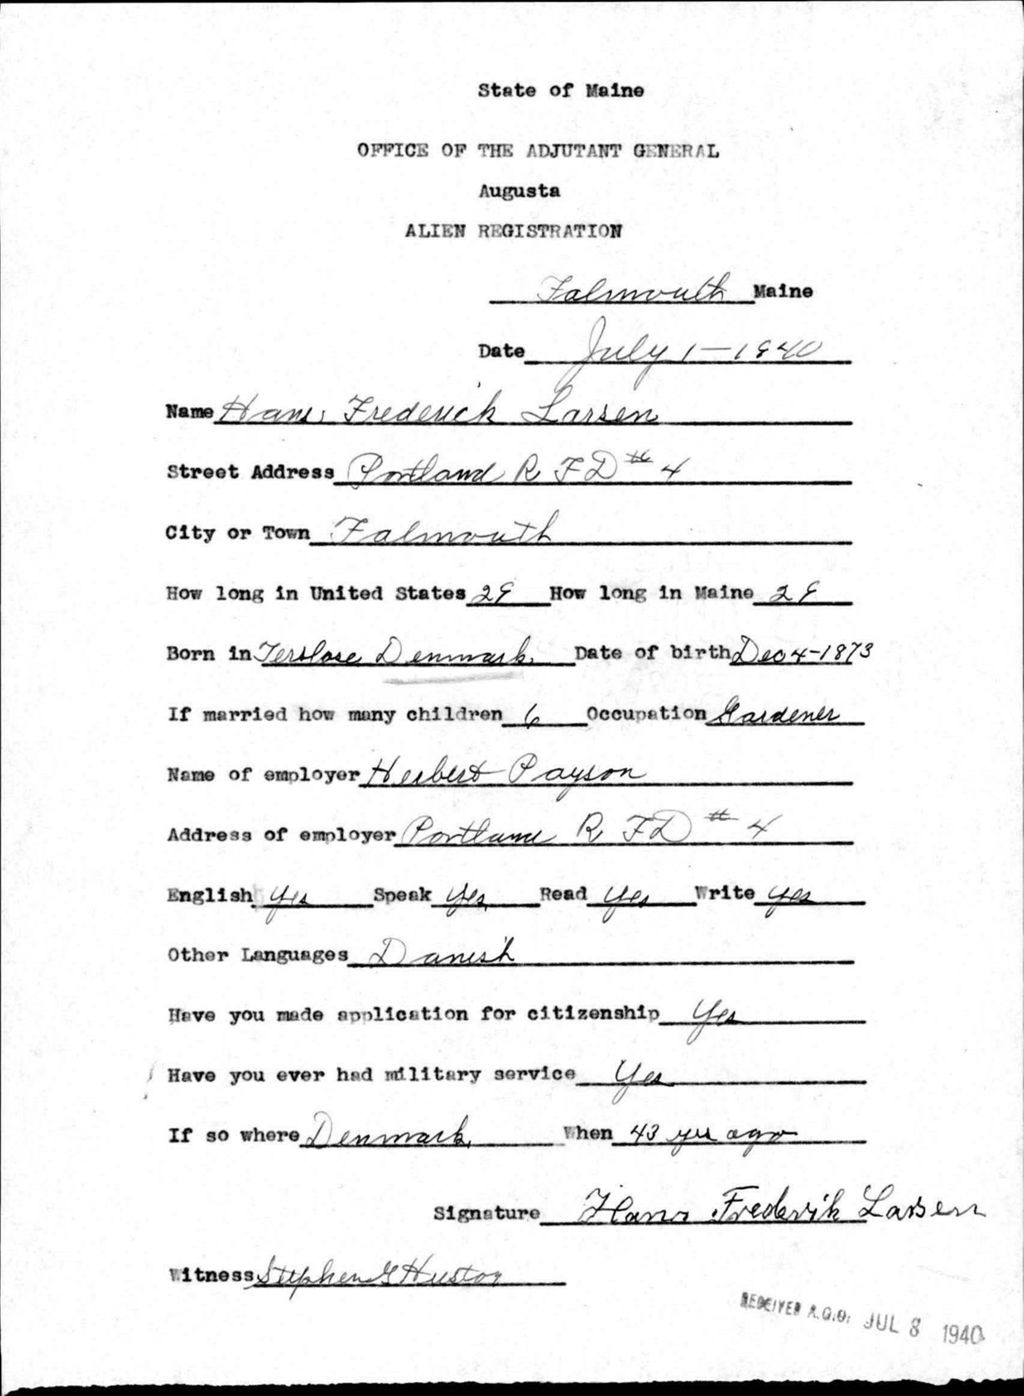 State of Maine
OFFICE OF THE ADJUTANT GENERAL
Augusta
ALIEN REGISTRATION
Falmouth Maine
Date July 1-1940
Name Hans Frederick Larsen
Street Address Portland R F D # 4
City or Town Falmouth
How long in United States 29 How long in Maine 29
Born in Terslose Denmark. Date of birth Dec 4-1873
If married how many children 6 Occupation Gardener
Name of employer Herbert Payson
Address of employer Portland R F D # 4
English Yes Speak Yes Read Yes Write Yes
Other Languages Danish
Have you made application for citizenship Yes
Have you ever had military service Yes
If so where Denmark When 43 yrs ago
Signature Hans Frederik Larsen
Witness Stephen G Huston
RECEIVED A.G.O. JUL 8 1940